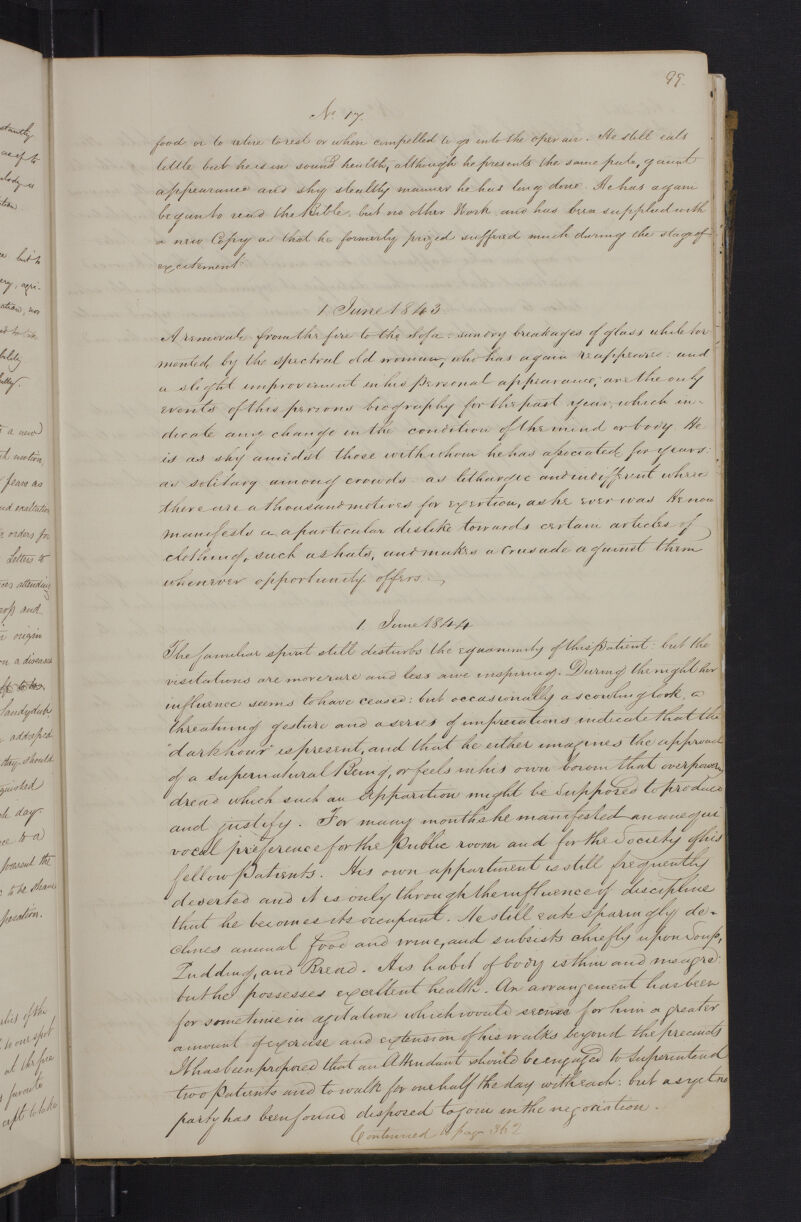 99.
No. 17.
food or to retire to rest or when compelled to go into the open air. He still eats
little but he is in sound health, although he presents the same pale, gaunt
appearance and shy stealthy manner he has long done. He has again
begun to read the Bible, but no other Work, and has been supplied with
a new Copy as that he formerly prized suffered much during the stage of
excitement.
1 June 1843
A removal from the fire to the sofa: sundry breakages of glass while tor-
mented by the spectral old woman, who has again reappeared: and
a slight improvement in his personal appearance, are the only
events of this persons biography for the past year, which in-
dicate any change in the condition of the mind or body. He
is as shy amidst those with whom he has associated for years:
as solitary among crowds: as lethargic and indifferent where
there are a thousand motives for exertion, as he ever was. He now
manifests a a particular dislike towards certain articles of
clothing, such as hats, and makes a crusade against them
whenever opportunity offers.
1 June 1844
The familiar spirit still disturbs the equanimity of this Patient: but the
visitations are more rare and less awe inspiring. During the night her
influence seems to have ceased: but occasionally a scowling look, a
threatning gesture and a series of imprecations indicate that the
"dark hour" is present, and that he either imagines the approach
of a Supernatural Being, or feels in his own bosom that overpowering
dread which such an Apparition might be supposed to produce
and justify. For many months he manifested an unequi
vocal preference for the Public room and for the Society of his
fellow Patients. His own appartment is still frequently
deserted and it is only through the influence of discipline
that he becomes its occupant. He still eats sparingly de-
clines animal food and wine, and subsists chiefly upon Soup,
Pudding, and Bread. His habit of body is thin and meagre:
but he possesses excellent health. An arrangement has been
for some time in agitation which would secure for him a greater
amount of exercise and extension of his walks beyond the precincts
It has been proposed that an Attendant should be engaged to superintend
two Patients and to walk for one half the day with each: but as yet no
party has been found disposed to join in the negociation.
Continued to page 362